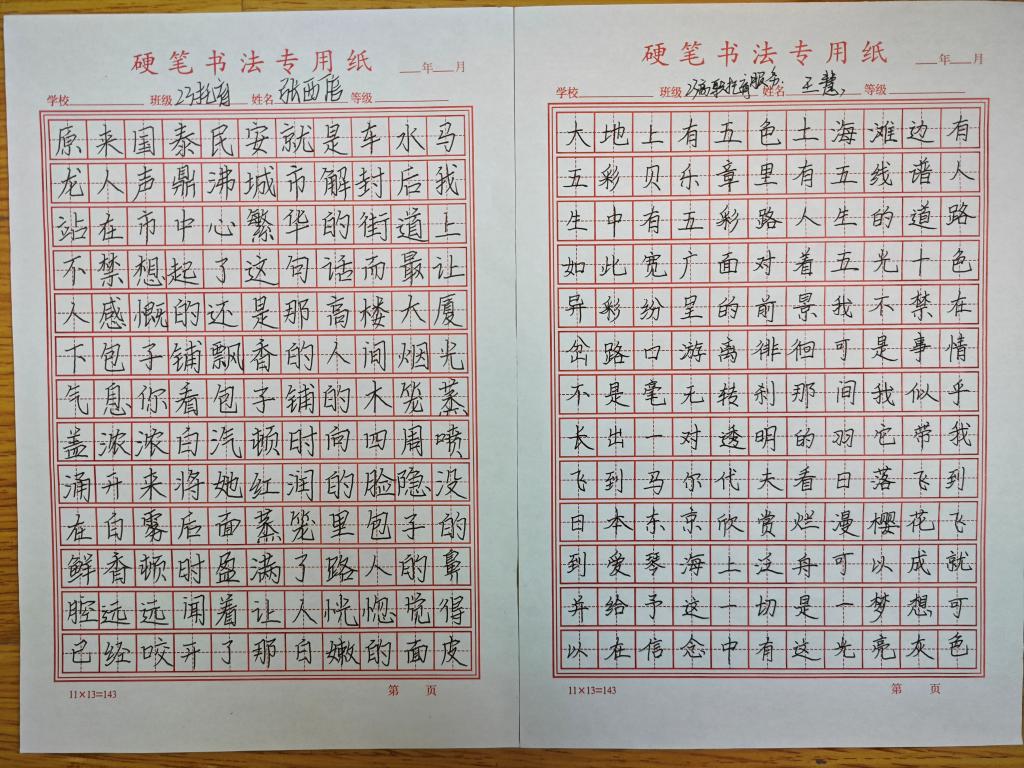 硬笔书法专用纸
年 月
学校 班级 23托育 姓名 张西 等级
原来国泰民安就是车水马
龙人声鼎沸城市解封后我
站在市中心繁华的街道上
不禁想起了这句话而最让
人感慨的还是那高楼大厦
下包子铺飘香的人间烟光
气息你看包子铺的木笼蒸
盖浓浓白汽顿时向四周喷
涌开来将她红润的脸隐没
在白雾后面蒸笼里包子的
鲜香顿时盈满了路人的鼻
腔远远闻着让人恍惚觉得
已经咬开了那白嫩的面皮
11×13=143 第 页
硬笔书法专用纸
年 月
学校 班级 23高职托育服务 姓名 王慧 等级
大地上有五色土海滩边有
五彩贝乐章里有五线谱人
生中有五彩路人生的道路
如此宽广面对着五光十色
异彩纷呈的前景我不禁在
岔路口游离徘徊可是事情
不是毫无转刹那间我似乎
长出一对透明的羽它带我
飞到马尔代夫看日落飞到
日本东京欣赏烂漫樱花飞
到爱琴海上泛舟可以成就
并给予这一切是一梦想可
以在信念中有这光亮灰色
11×13=143 第 页